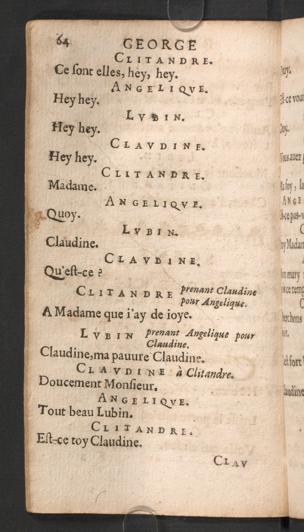 64 GEORGE
CLITANDRE.
Ce ſont elles, héy, hey.
ANGELIQVE.
Hey hey.
LVBIN.
Hey hey.
CLAVDINE.
Hey hey.
CLITANDRE.
Madame.
ANGELIQVE.
Quoy.
LVBIN.
Claudine.
CLAVDINE.
Qu'eſt-ce ?
CLITANDRE prenant Claudine
pour Angelique.
A Madame que i'ay de ioye.
LVBIN prenant Angelique pour
Claudine.
Claudine, ma pauure Claudine.
CLAVDINE à Clitandre.
Doucement Monſieur.
ANGELIQVE.
Tout beau Lubin.
CLITANDRE.
Eſt-ce toy Claudine.
CLAV